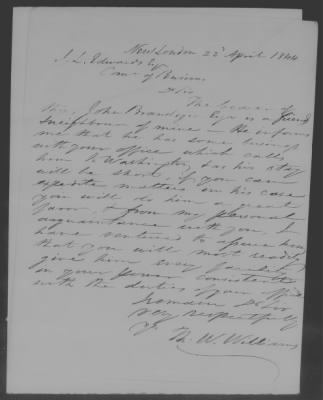 New London 22d April 1844
J. L. Edwards Esq
Comr of Pensions
D Sir
The bearer of
this, John Brandegee Esqr is a friend
& neighbour of mine - He informs
me that he has some business
with your office which calls
him to Washington, as his stay
will be short, if you can
expedite matters in his case
you will do him a great
favor, & from my personal
acquaintance with you, I
have ventured to assure him
that you will most readily
give him every facility
in your power consistently
with the duties of your office
I remain D Sir
very respectfully
Th. W. Williams